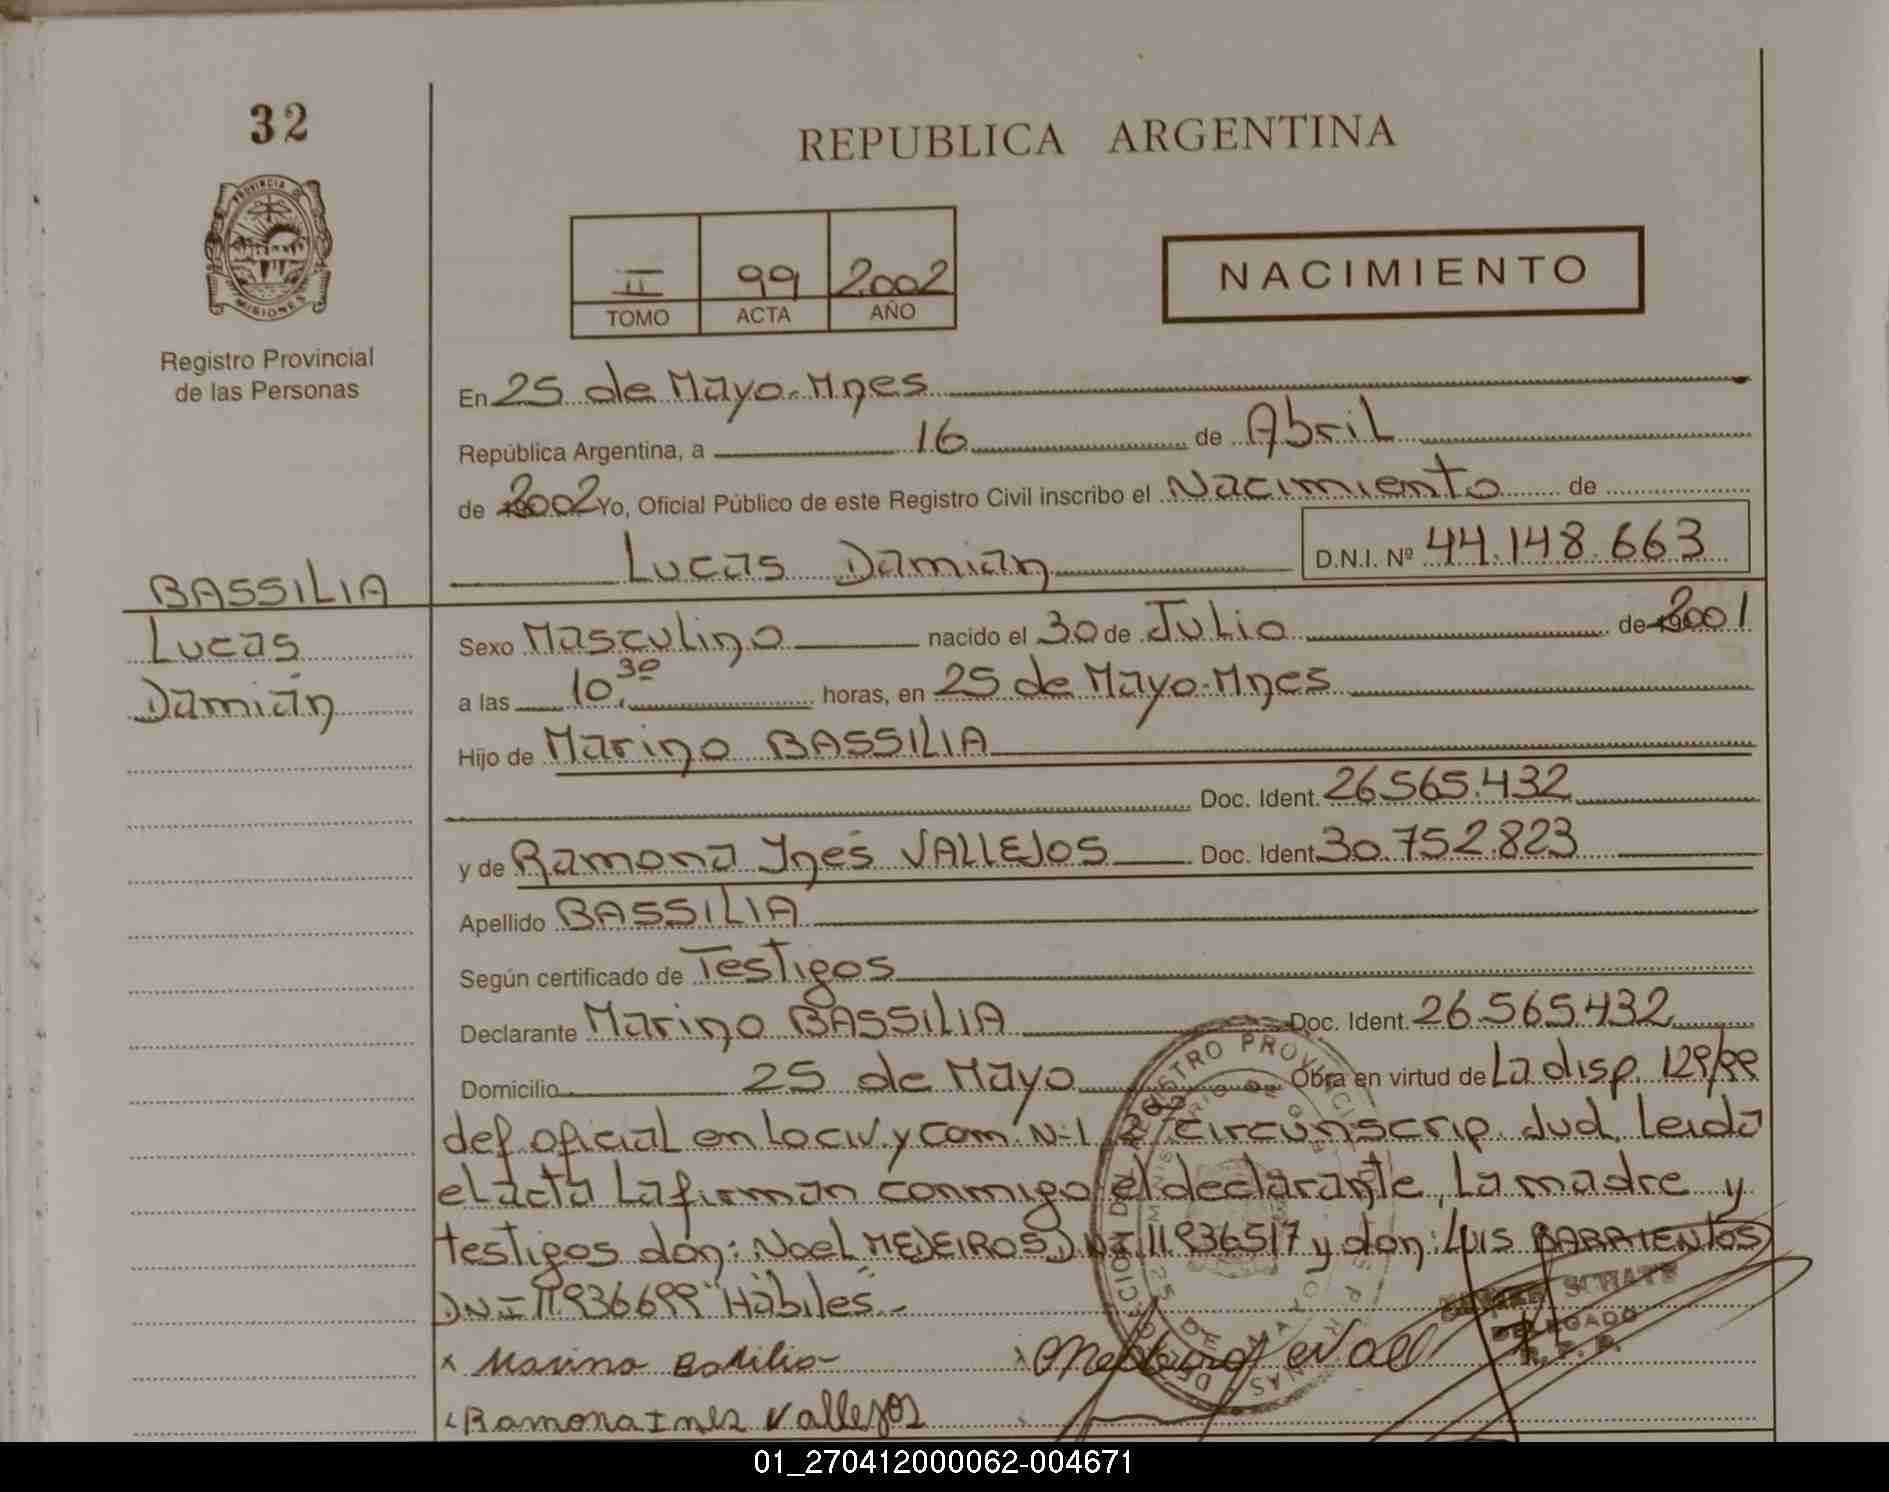 32
REPUBLICA ARGENTINA
PROVINCIA DE
MISIONES
Registro Provincial
de las Personas
II 99 2002
TOMO ACTA AÑO
NACIMIENTO
En 25 de Mayo-Mnes
República Argentina, a 16 de Abril
de 2002 Yo, Oficial Público de este Registro Civil inscribo el Nacimiento de
Lucas Damián D.N.I. Nº 44.148.663
BASSILIA
Lucas
Damián
Sexo Masculino nacido el 30 de Julio de 2001
a las 10,30 horas, en 25 de Mayo-Mnes
Hijo de Marino BASSILIA
Doc. Ident. 26.565.432
y de Ramona Ynés VALLEJOS Doc. Ident. 30.752.823
Apellido BASSILIA
Según certificado de Testigos
Declarante Marino BASSILIA Doc. Ident. 26.565.432
Domicilio 25 de Mayo Obra en virtud de La disp. 129/99
def. oficial en lo civ. y com. N-1 2da circunscrip. Jud. Leida
el acta la firman conmigo el declarante, la madre y
testigos don: Noel MEDEIROS DNI 11.936517 y don: Luis BARRIENTOS
DNI 11.936699 Hábiles.-
x Marino Basilia
x Medeiros Noel
DELEGADO
R. P. P.
x Ramona Ines Vallejos
01_270412000062-004671